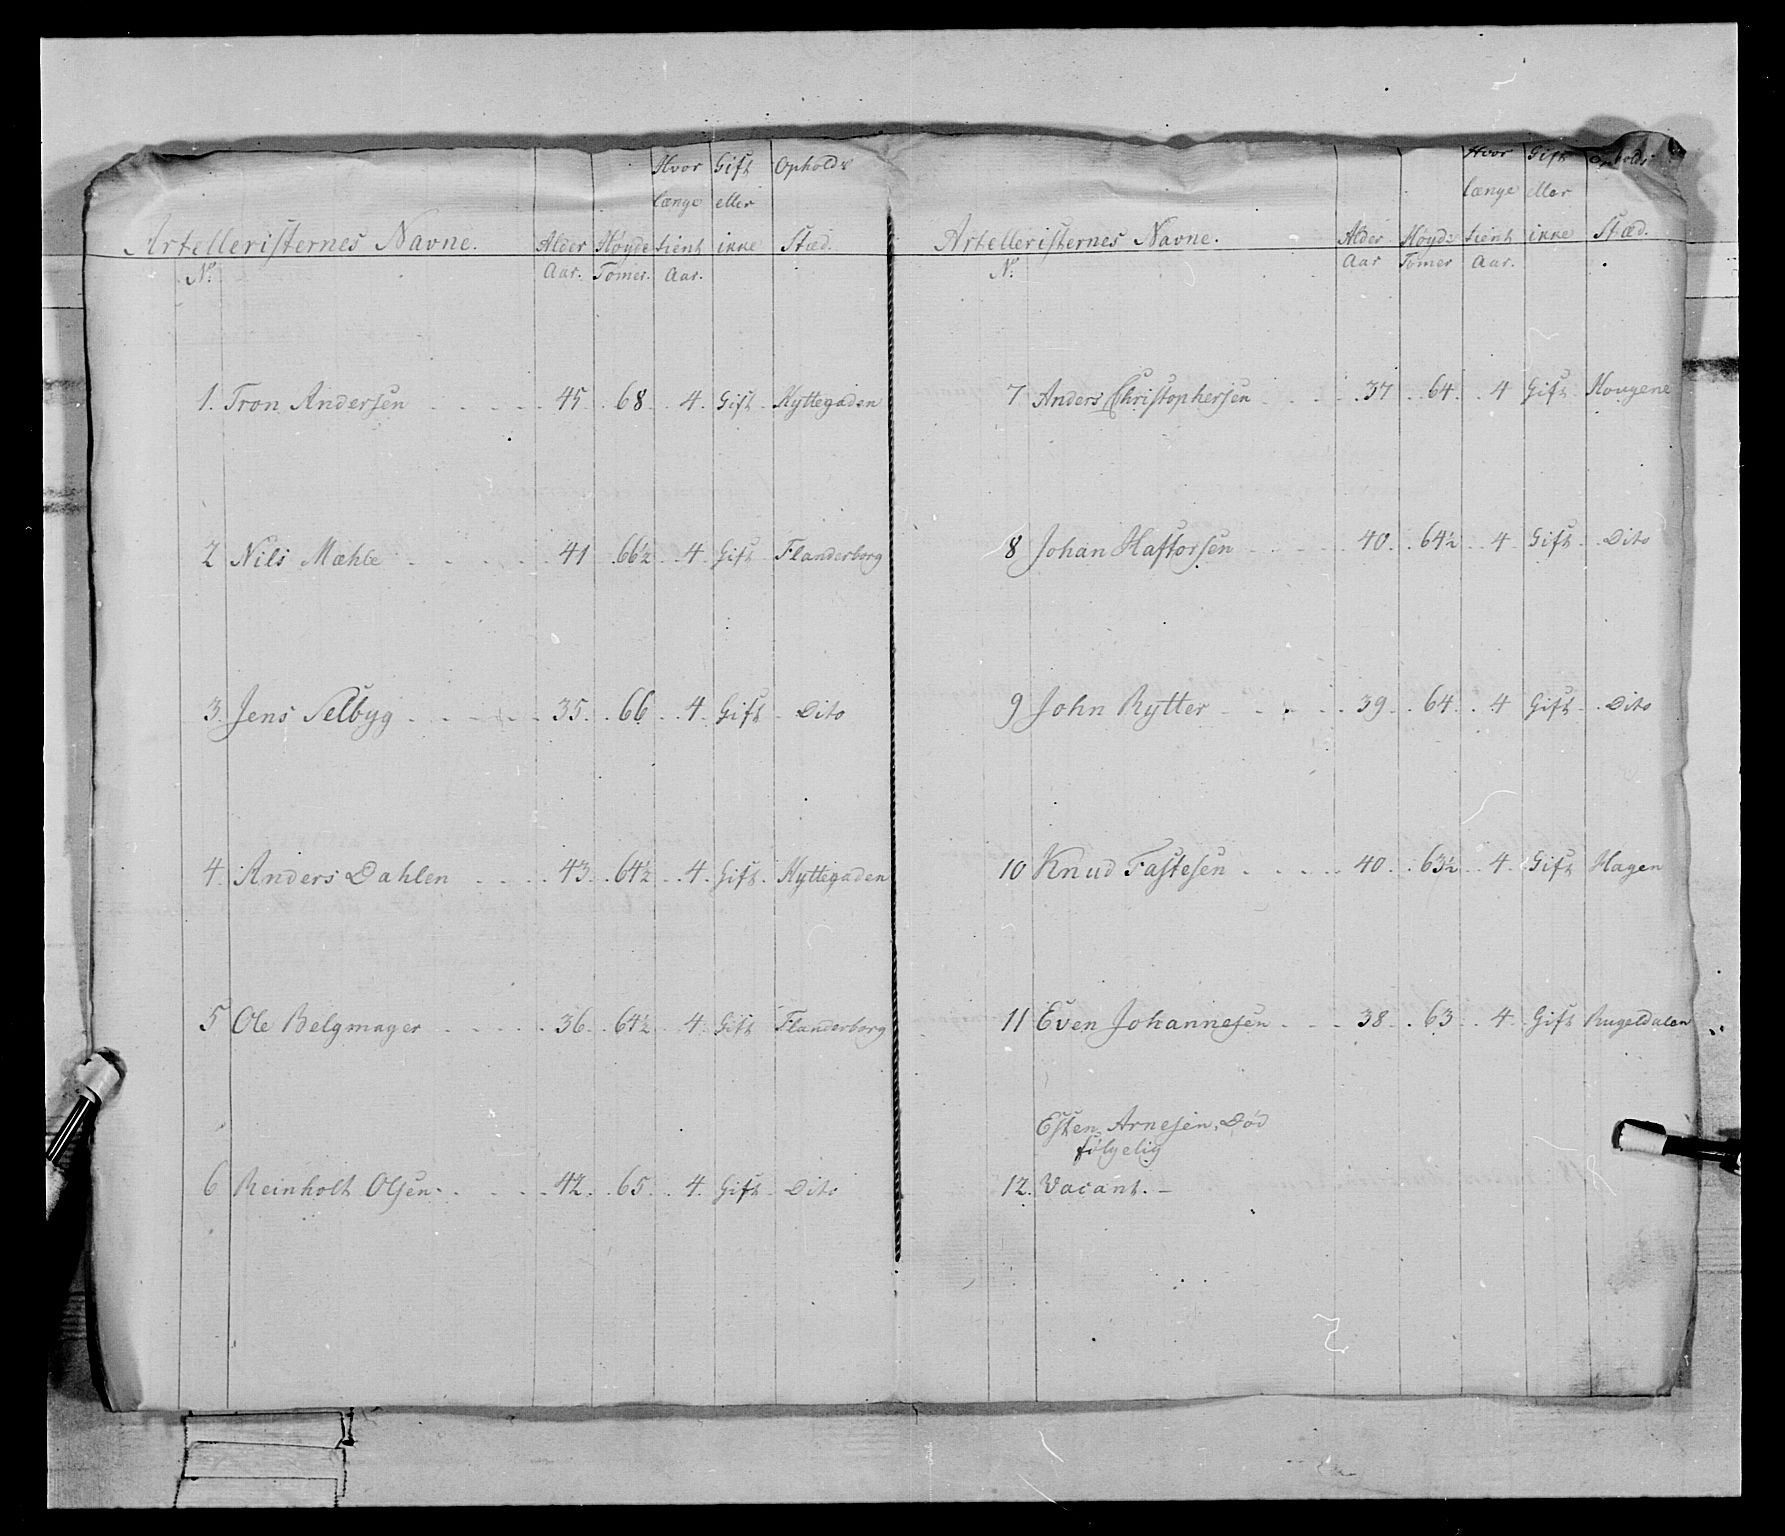 Hvor Gift Ophold's
længe eller
Artelleristernes Navne. Alder Høyde tient ikke Stæd.
No. Aar. Tomer. Aar.
1. Tron Andersen 45 68 4 Gift Hyttegaden
2 Nils Mæhle 41 66½ 4 Gift Flanderborg
3. Jens Selbyg 35 66 4 Gift Dito
4. Anders Dahlen 43 64½ 4 Gift Hyttegaden
5 Ole Belgmager 36 64½ 4 Gift Flanderborg
6 Reinholt Olsen 42 65 4 Gift Dito
Hvor Gift Opholds
længe eller
Artelleristernes Navne. Alder Høyde tient ikke Stæd.
No. Aar Tomer Aar.
7 Anders Christophersen 37 64 4 Gift Hougene
8 Johan Haftorsen 40 64½ 4 Gift Dito
9 John Rytter 39 64 4 Gift Dito
10 Knud Fastesen 40 63½ 4 Gift Hagen
11 Even Johannesen 38 63 4 Gift Rugeldalen
Esten Arnesen Død
følgelig
12. Vacant. –